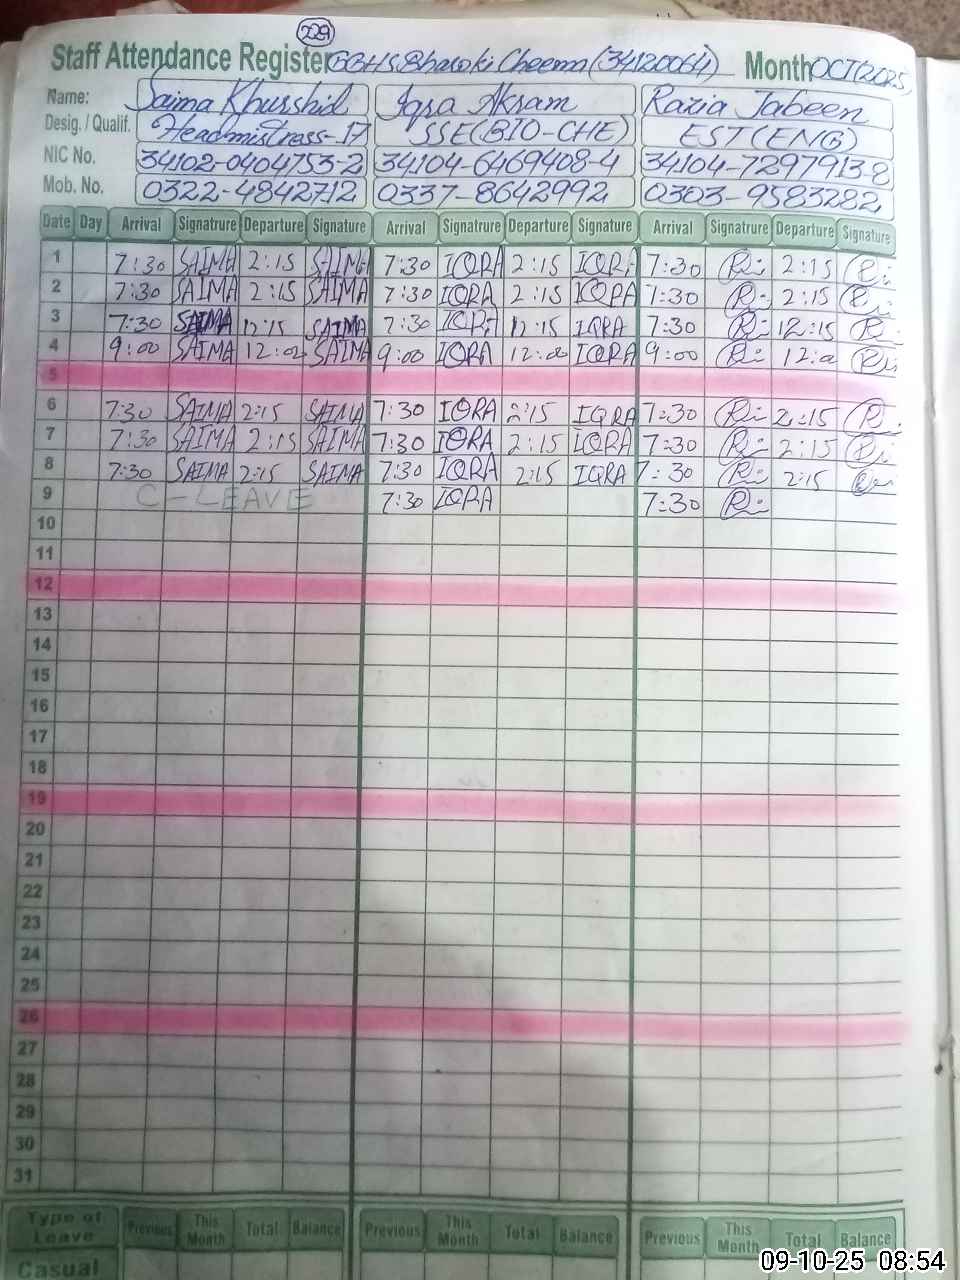 229
Staff Attendance Register GGHS Bharoki Cheema (34120064) Month OCT(2025)
Name: Saima Khurshid Iqra Akram Razia Jabeen
Desig. / Qualif. Headmistress-17 SSE(BIO-CHE) EST(ENG)
NIC No. 34102-0404753-2 34104-6469408-4 34104-7297913-8
Mob. No. 0322-4842712 0337-8642992 0303-9583282
Date Day Arrival Signatrure Departure Signature Arrival Signatrure Departure Signature Arrival Signatrure Departure Signature
1 7:30 SAIMA 2:15 SAIMA 7:30 IQRA 2:15 IQRA 7:30 2:15
2 7:30 SAIMA 2:15 SAIMA 7:30 IQRA 2:15 IQRA 7:30 2:15
3 7:30 SAIMA 12:15 SAIMA 7:30 IQRA 12:15 IQRA 7:30 12:15
4 9:00 SAIMA 12:00 SAIMA 9:00 IQRA 12:00 IQRA 9:00 12:0
5
6 7:30 SAIMA 2:15 SAIMA 7:30 IQRA 2:15 IQRA 7:30 2:15
7 7:30 SAIMA 2:15 SAIMA 7:30 IQRA 2:15 IQRA 7:30 2:15
8 7:30 SAIMA 2:15 SAIMA 7:30 IQRA 2:15 IQRA 7:30 2:15
9 C-LEAVE 7:30 IQRA 7:30
10
11
12
13
14
15
16
17
18
19
20
21
22
23
24
25
26
27
28
29
30
31
Type of Leave Previous This Month Total Balance Previous This Month Total Balance Previous This Month Total Balance
Casual
09-10-25 08:54